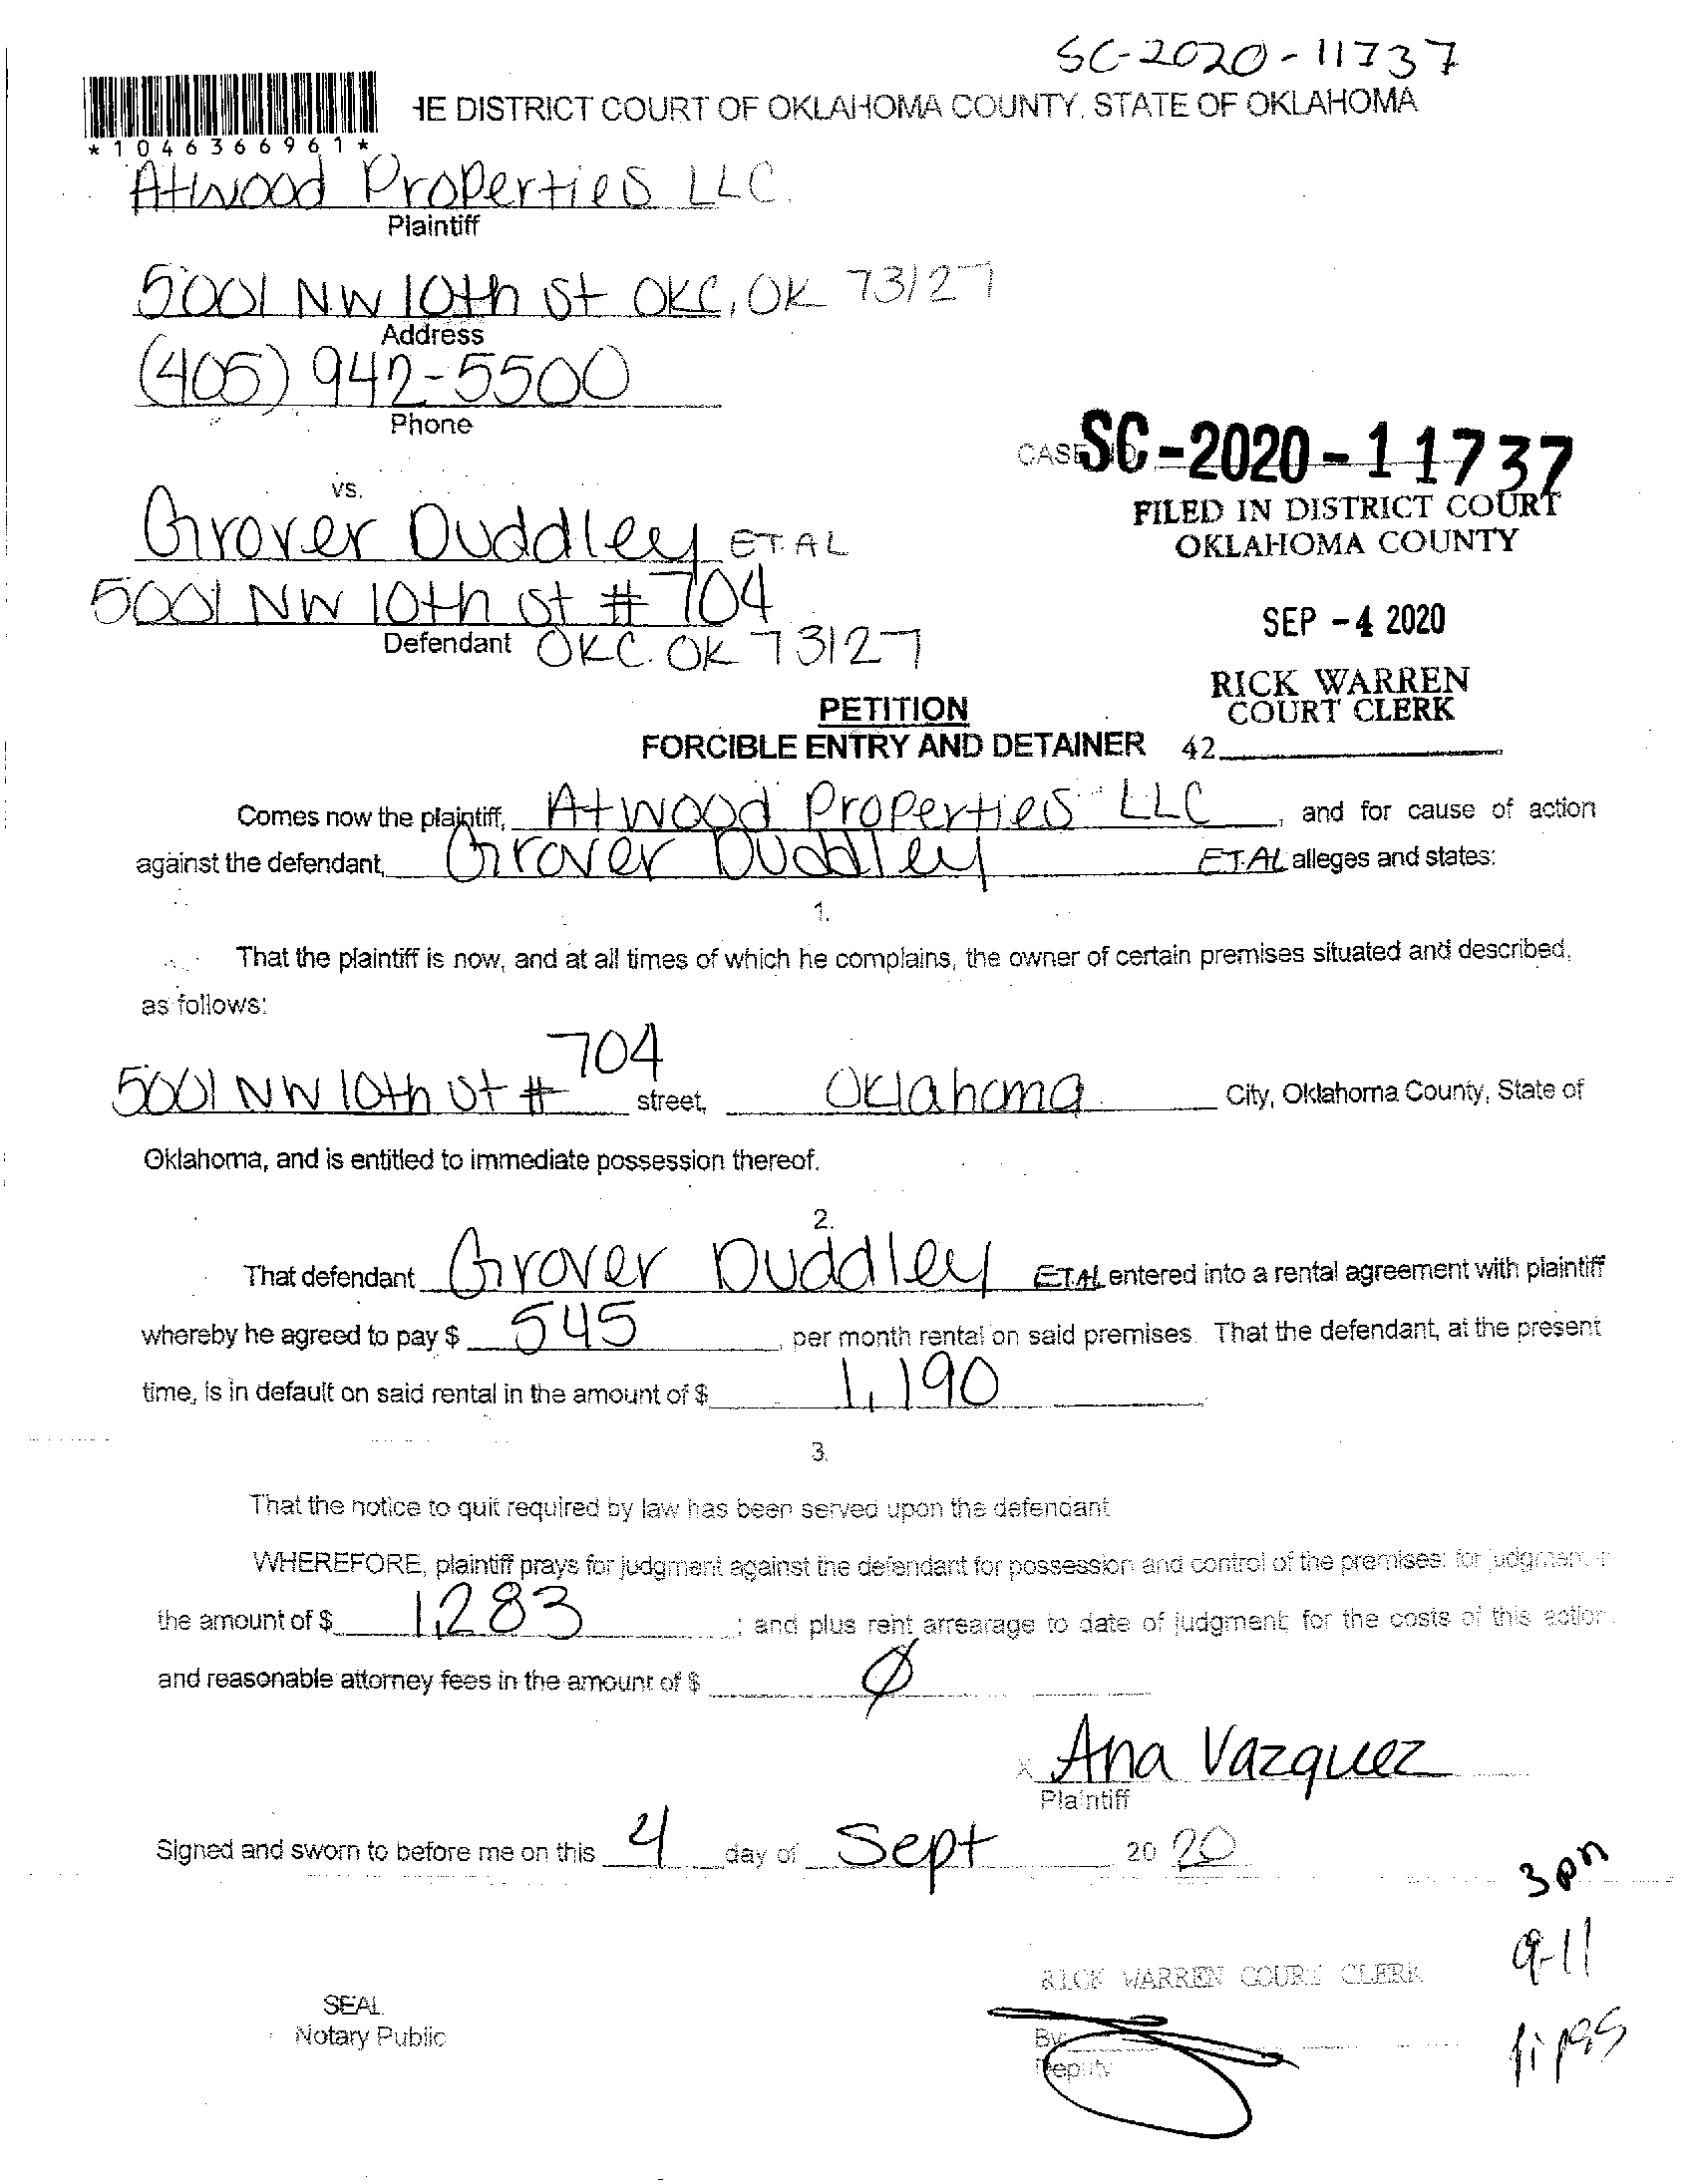 SC-2020-11737
HE DISTRICT COURT OF OKLAHOMA COUNTY, STATE OF OKLAHOMA
*1046366961*
Atwood Properties LLC.
Plaintiff
5001 NW 10th St OKC, OK 73127
Address
(405) 942-5500
Phone
CASE SC-2020-11737
FILED IN DISTRICT COURT
OKLAHOMA COUNTY
vs.
Grover Duddley ET. AL
5001 NW 10th St # 704
Defendant OKC. OK 73127
SEP -4 2020
RICK WARREN
COURT CLERK
42
PETITION
FORCIBLE ENTRY AND DETAINER
Comes now the plaintiff, Atwood Properties LLC, and for cause of action
against the defendant, Grover Duddley ET.AL alleges and states:
1.
That the plaintiff is now, and at all times of which he complains, the owner of certain premises situated and described,
as follows:
5001 NW 10th St # 704 street, Oklahoma City, Oklahoma County, State of
Oklahoma, and is entitled to immediate possession thereof.
2.
That defendant Grover Duddley ET.AL entered into a rental agreement with plaintiff
whereby he agreed to pay $ 545, per month rental on said premises. That the defendant, at the present
time, is in default on said rental in the amount of $ 1,190.
3.
That the notice to quit required by law has been served upon the defendant
WHEREFORE, plaintiff prays for judgment against the defendant for possession and control of the premises: for judgment
the amount of $ 1,283; and plus rent arrearage to date of judgment; for the costs of this action
and reasonable attorney fees in the amount of $ Ø
X Ana Vazquez
Plaintiff
Signed and sworn to before me on this 4 day of Sept 20 20
3pm
9-11
RICK WARREN COURT CLERK
SEAL
Notary Public
By:
Deputy